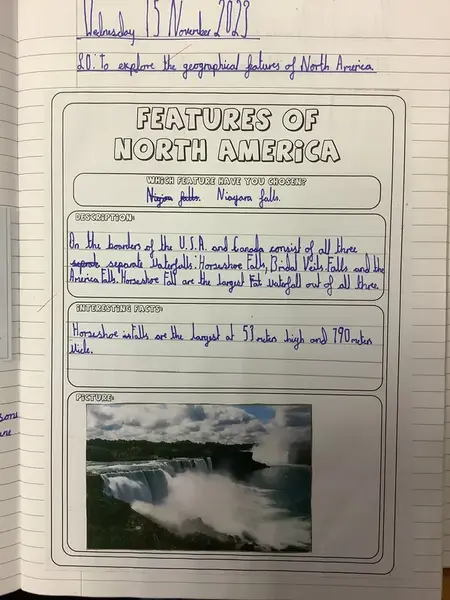 Wednesday 15 November 2023
LO: to explore the geographical features of North America
FEATURES OF
NORTH AMERICA
WHICH FEATURE HAVE YOU CHOSEN?
Niagra falls. Niagara falls.
DESCRIPTION:
On the boarders of the U.S.A. and Canada consist of all three
seprate separate Waterfalls: Horseshoe Falls, Bridal Veils Falls and the
America Falls. Horseshoe Fall are the largest Fat waterfall out of all three.
INTERESTING FACTS:
Horseshoe falls are the largest at 53 meters high and 790 meters
wide.
PICTURE: